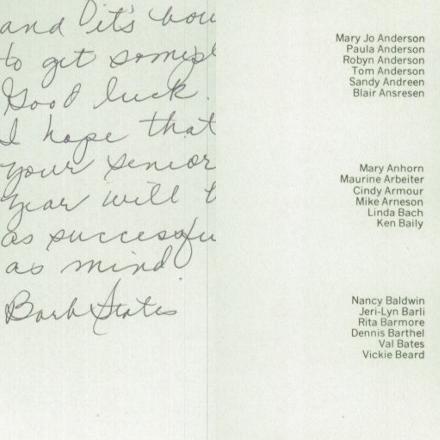 and it's
to get
Good luck.
I hope that
your senior
year will
as
as mind
Barb States
Mary Jo Anderson
Paula Anderson
Robyn Anderson
Tom Anderson
Sandy Andreen
Blair Ansresen
Mary Anhorn
Maurine Arbeiter
Cindy Armour
Mike Arneson
Linda Bach
Ken Baily
Nancy Baldwin
Jeri-Lyn Barli
Rita Barmore
Dennis Barthel
Val Bates
Vickie Beard